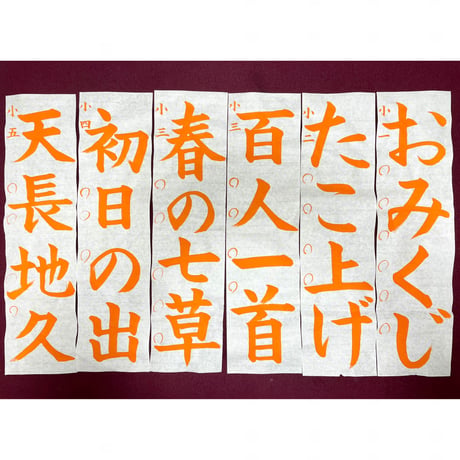 小一
おみくじ
小二
たこ上げ
小三
百人一首
小三
春の七草
小四
初日の出
小五
天長地久